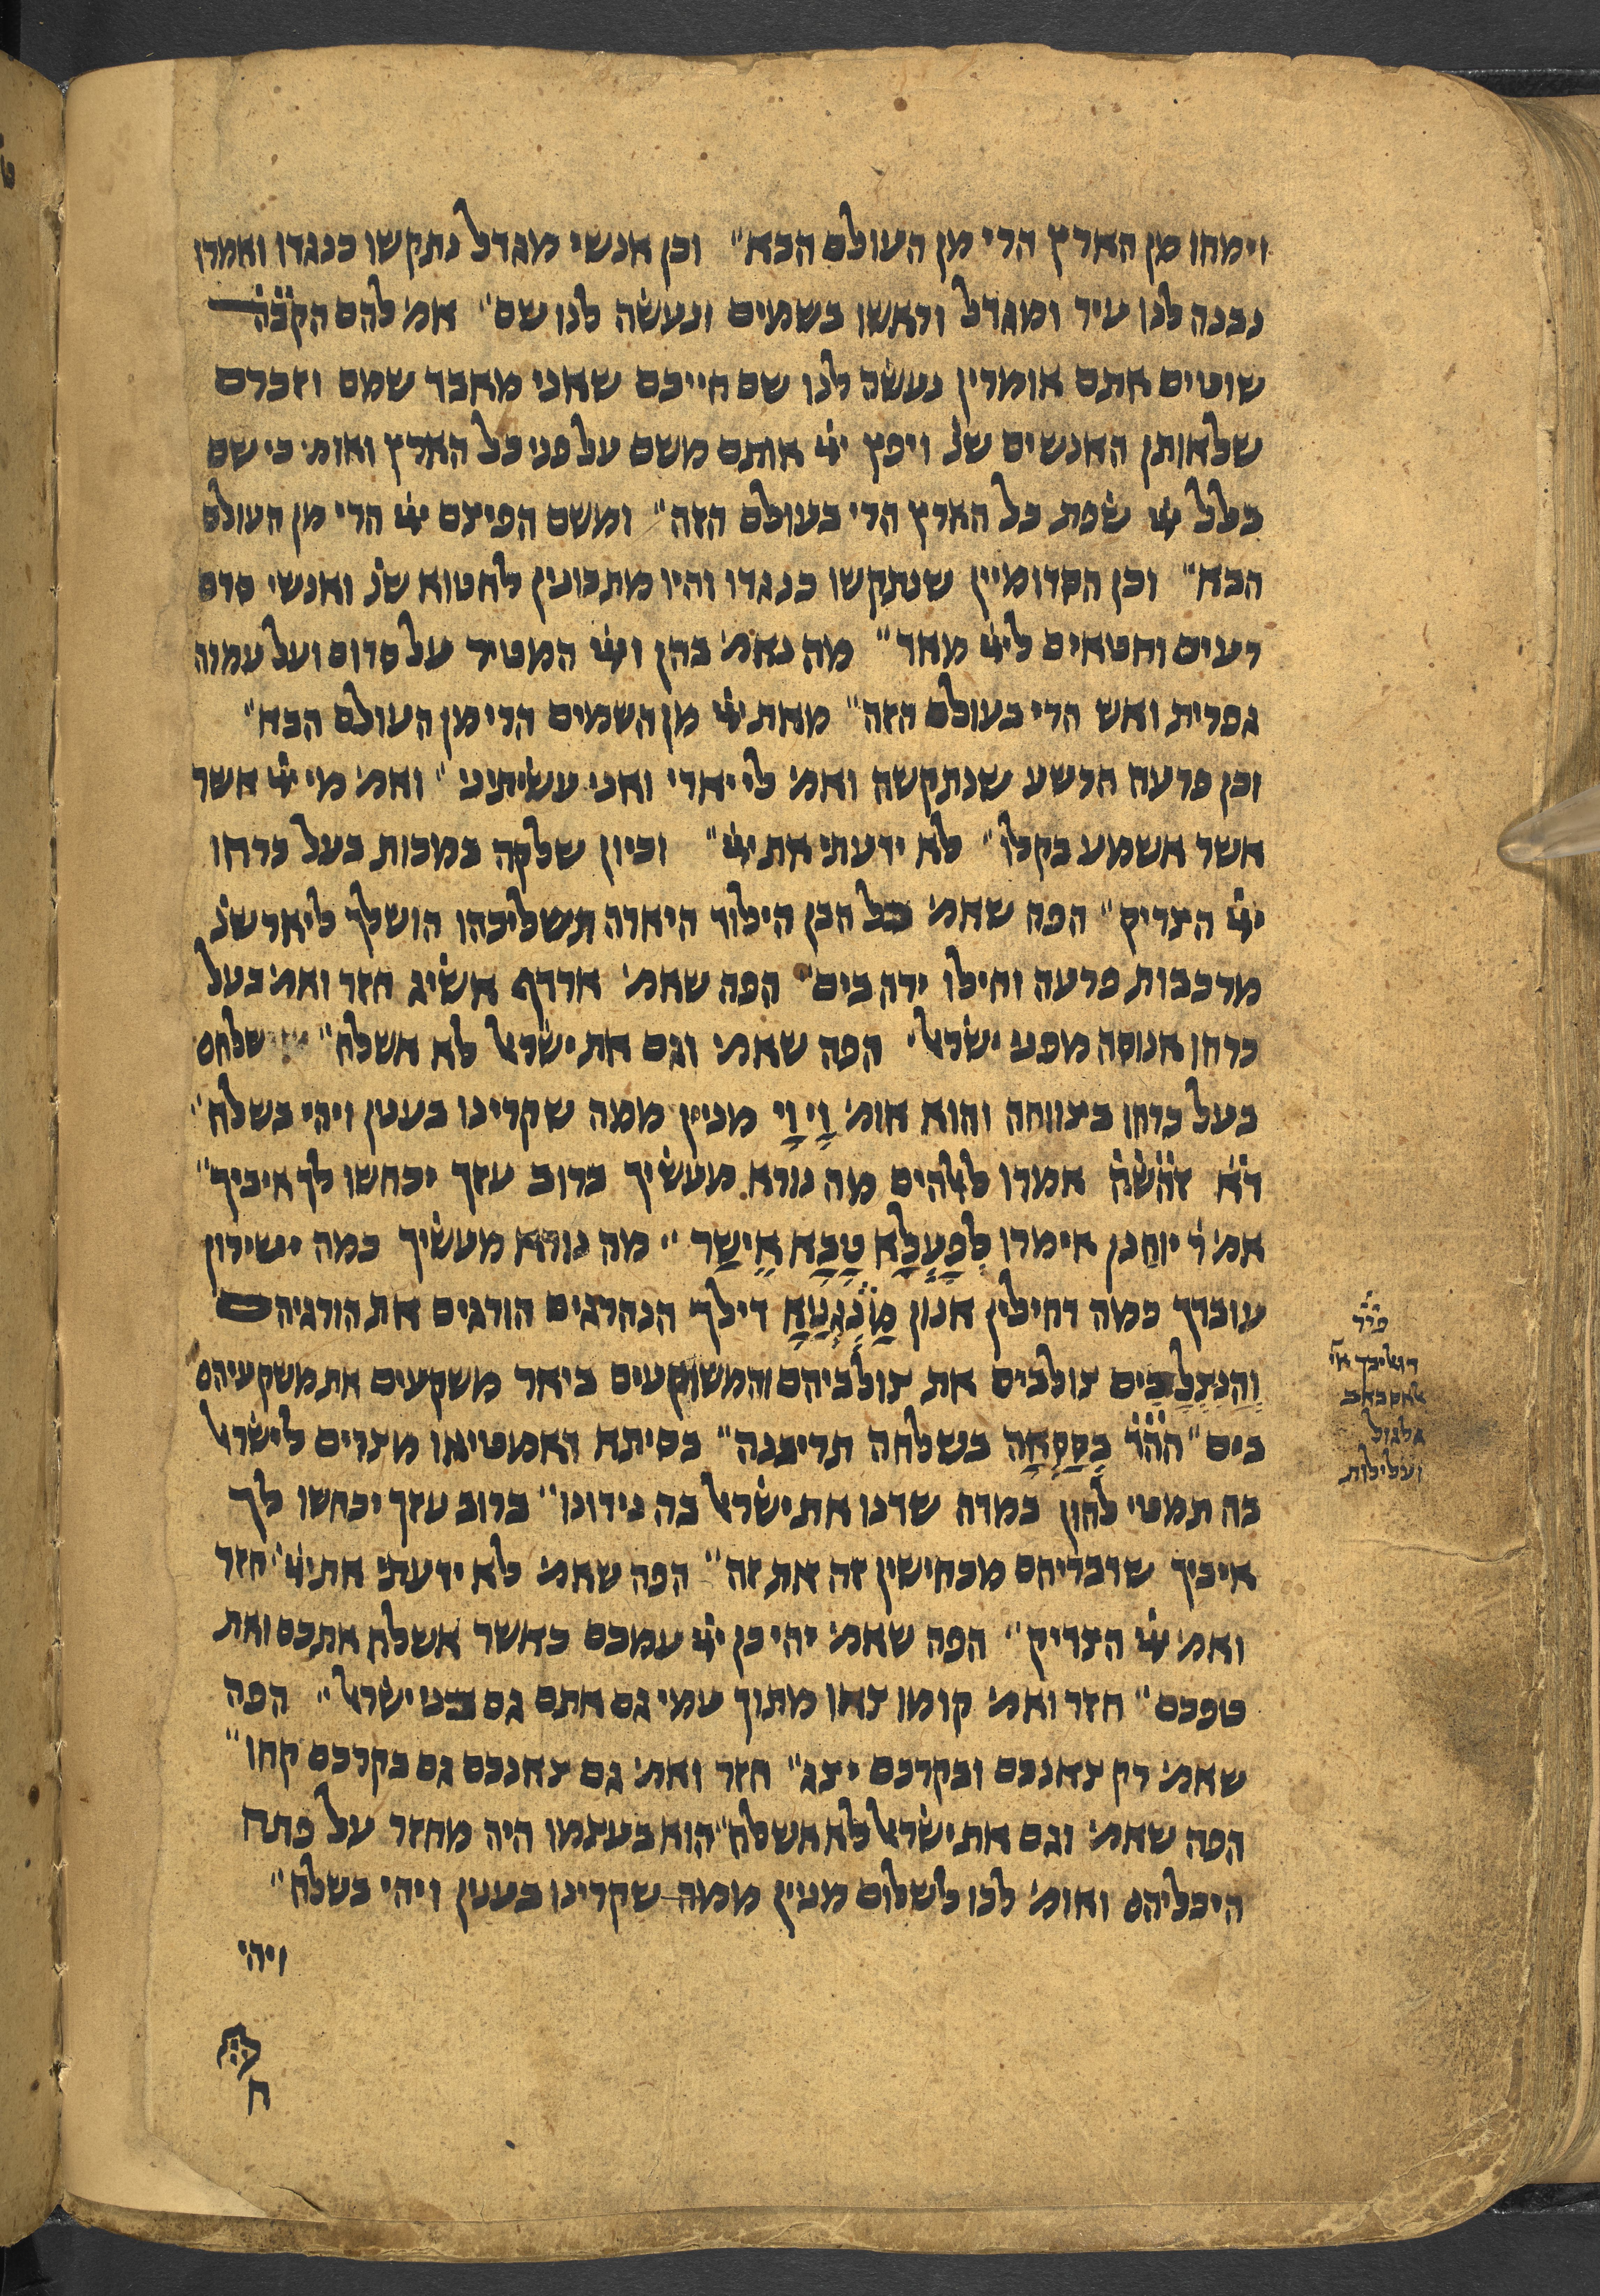 וימחו מן הארץ הרי מן העולם הבא״ וכן אנשי מגדל נתקשו כנגדו ואמרו
נבנה לנו עיר ומגדל וראשו בשמים ונעשה לנו שם״ אמ׳ להם הקבה
שוטים אתם אומרין נעשה לנו שם חייכם שאני מאבד שמם וזכרם
שלאותן האנשים שנ׳ ויפץ יי׳ אותם משם על פני כל הארץ ואומ׳ כי שם
בלל יי׳ שפת כל הארץ הרי בעולם הזה״ ומשם הפיצם יי׳ הרי מן העולם
הבא״ וכן הסדומיין שנתקשו כנגדו והיו מתכונין לחטוא שנ׳ ואנשי סדם
רעים וחטאים ליי׳ מאד״ מה נאמ׳ בהן ויי׳ המטיר על סדום ועל עמורה
גפרית ואש הרי בעולם הזה״ מאת יי׳ מן השמים הרי מן העולם הבא״
וכן פרעה הרשע שנתקשה ואמ׳ לי יארי ואני עשיתיני״ ואמ׳ מי יי׳ אשר
אשר אשמע בקלו״ לא ידעתי את יי׳״ וכיון שלקה במכות בעל כרחו
יי׳ הצדיק״ הפה שאמ׳ כל הבן הילוד היארה תשליכהו הושלך ליאר שנ׳
מרכבות פרעה וחילו ירה בים״ הפה שאמ׳ ארדף אשיג חזר ואמ׳ בעל
כרחו אנוסה מפני ישראל׳ הפה שאמ׳ וגם את ישראל לא אשלח״ שלחם
בעל כרחו בצווחה והוא אומ׳ וָי וָי מנין ממה שקרינו בענין ויהי בשלח״
דא זהשה אמרו לאלהים מה נורא מעשיך ברוב עזך יכחשו לך איביך״
אמ׳ ר׳ יוחנן אימרו לְפָעֲלָא טָבָא אִישַר״ מה נורא מעשיך כמה ישירון
עובדך כמה דחילין אנון מַנְגָנַיָא דילך הנהרגים הורגים את הורגיהם
וְהַנִצְלָבִים צולבים את צולביהם והמשוקעים ביאר משקעים את משקעיהם
בים״ ההר בְסַסְאָה בשלחה תריבנה״ בסיתא דאמטיאו מצרים לישראל
בה תמטי להון במדה שדנו את ישראל בה נידונו״ ברוב עזך יכחשו לך
איביך שדבריהם מכחישין זה את זה״ הפה שאמ׳ לא ידעתי את יי׳ חזר
ואמ׳ יי׳ הצדיק״ הפה שאמ׳ יהי כן יי׳ עמכם כאשר אשלח אתכם ואת
טפכם״ חזר ואמ׳ קומו צאו מתוך עמי גם אתם גם בני ישראל״ הפה
שאמ׳ רק צאנכם ובקרכם יצג״ חזר ואמ׳ גם צאנכם גם בקרכם קחו״
הפה שאמ׳ וגם את ישראל לא אשלח״ הוא בעצמו היה מחזר על פתח
היכליהם ואומ׳ לכו לשלום מנין ממה שקרינו בענין ויהי בשלח״
ויהי
ח